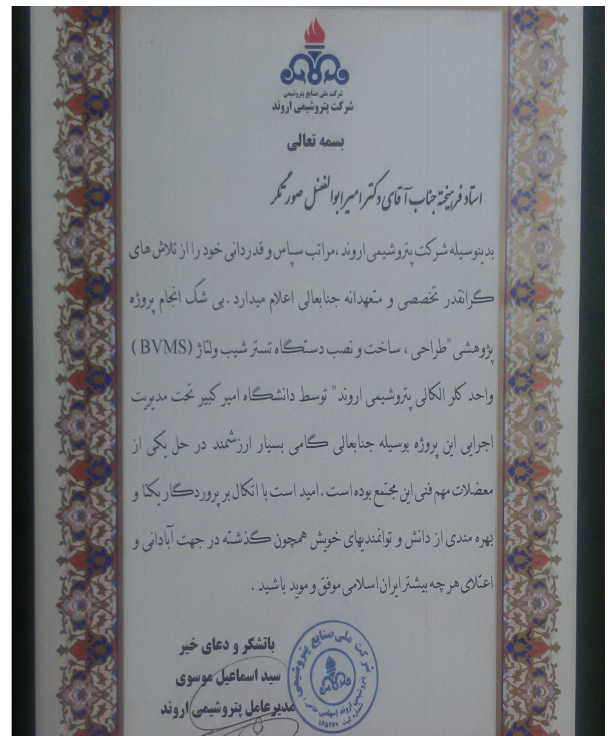 شرکت ملی صنایع پتروشیمی
شرکت پتروشیمی اروند
بسمه تعالی
استاد فرهیخته جناب آقای دکتر امیر ابوالفضل صورتگر
بدینوسیله شرکت پتروشیمی اروند ،مراتب سپاس و قدردانی خود را از تلاش های
گرانقدر تخصصی و متعهدانه جنابعالی اعلام میدارد .بی شک انجام پروژه
پژوهشی "طراحی ، ساخت و نصب دستگاه تستر شیب ولتاژ (BVMS )
واحد کلر الکالی پتروشیمی اروند" توسط دانشگاه امیر کبیر تحت مدیریت
اجرایی این پروژه بوسیله جنابعالی گامی بسیار ارزشمند در حل یکی از
معضلات مهم فنی این مجتمع بوده است .امید است با اتکال بر پروردگار یکتا و
بهره مندی از دانش و توانمندیهای خویش همچون گذشته در جهت آبادانی و
اعتلای هر چه بیشتر ایران اسلامی موفق و موید باشید .
باتشکر و دعای خیر
سید اسماعیل موسوی
مدیرعامل پتروشیمی اروند
شرکت ملی صنایع پتروشیمی
پتروشیمی اروند